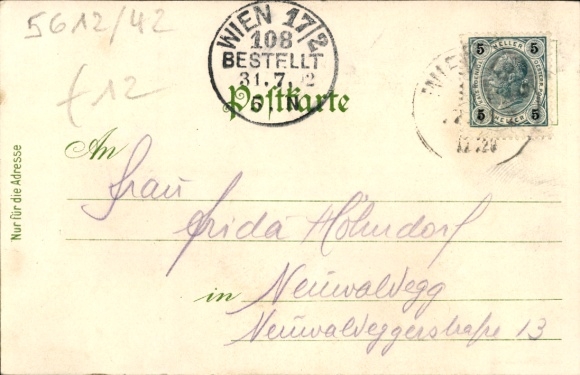 5612/42
f 12
WIEN 17/2
108
BESTELLT
31.7.02
5 N
Postkarte
5 HELLER 5
5 HELLER 5
Nur für die Adresse
An Frau
Frida Höhndorf
in Neuwaldegg
Neuwaldeggerstraße 13